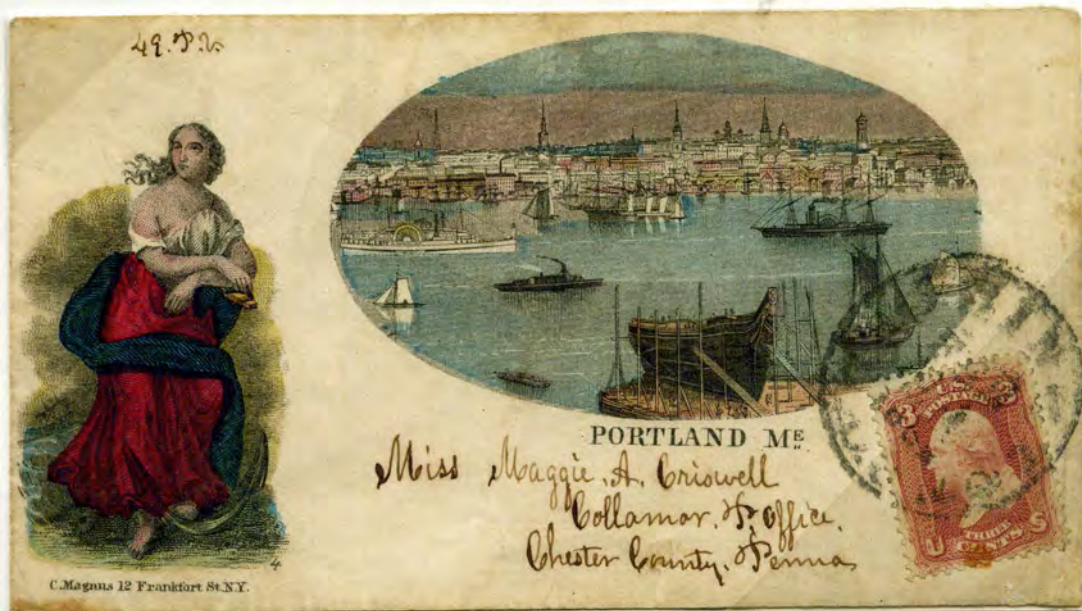 49. P.V.
PORTLAND ME
Miss Maggie. A. Criswell
Collamar. P. Office.
Chester County. Penna
C. Magnus 12 Frankfort St. N.Y.
4.
U.S. POSTAGE
3 3
THREE CENTS
U S